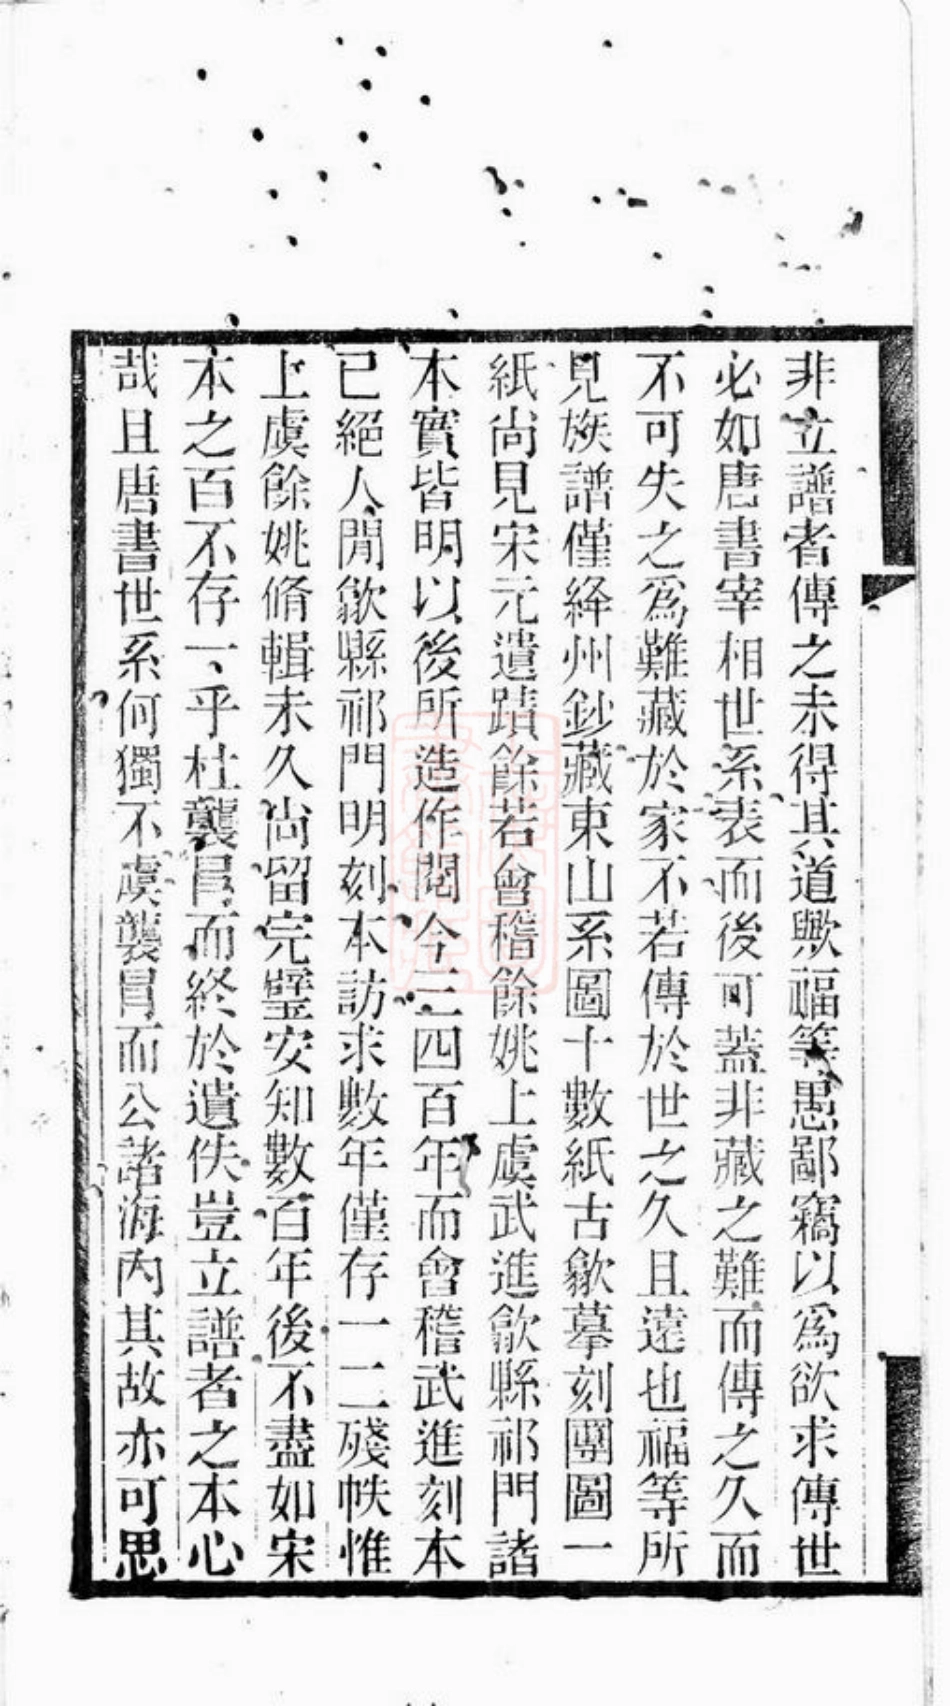 非立譜者傳之未得其道歟福等愚鄙竊以爲欲求傳世
必如唐書宰相世系表而後可蓋非藏之難而傳之久而
不可失之爲難藏於家不若傳於世之久且遠也福等所
見族譜僅絳州鈔藏東山系圖十數紙古歙摹刻團圖一
紙尚見宋元遺蹟餘若會稽餘姚上虞武進歙縣祁門諸
本實皆明以後所造作閱今三四百年而會稽武進刻本
已絕人閒歙縣祁門明刻本訪求數年僅存一二殘帙惟
上虞餘姚脩輯未久尚留完璧安知數百年後不盡如宋
本之百不存一乎杜襲冒而終於遺佚豈立譜者之本心
哉且唐書世系何獨不虞襲冒而公諸海內其故亦可思